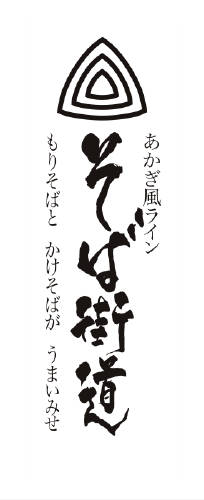 あかぎ風ライン
そば街道
もりそばと かけそばが うまいみせ